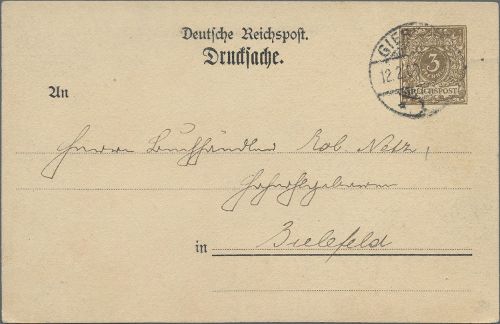 Deutsche Reichspost.
Drucksache.
GIE
12.2.
3
REICHSPOST
An
Herrn Buchhändler Rob. Netz,
Hochwohlgeboren
in Bielefeld